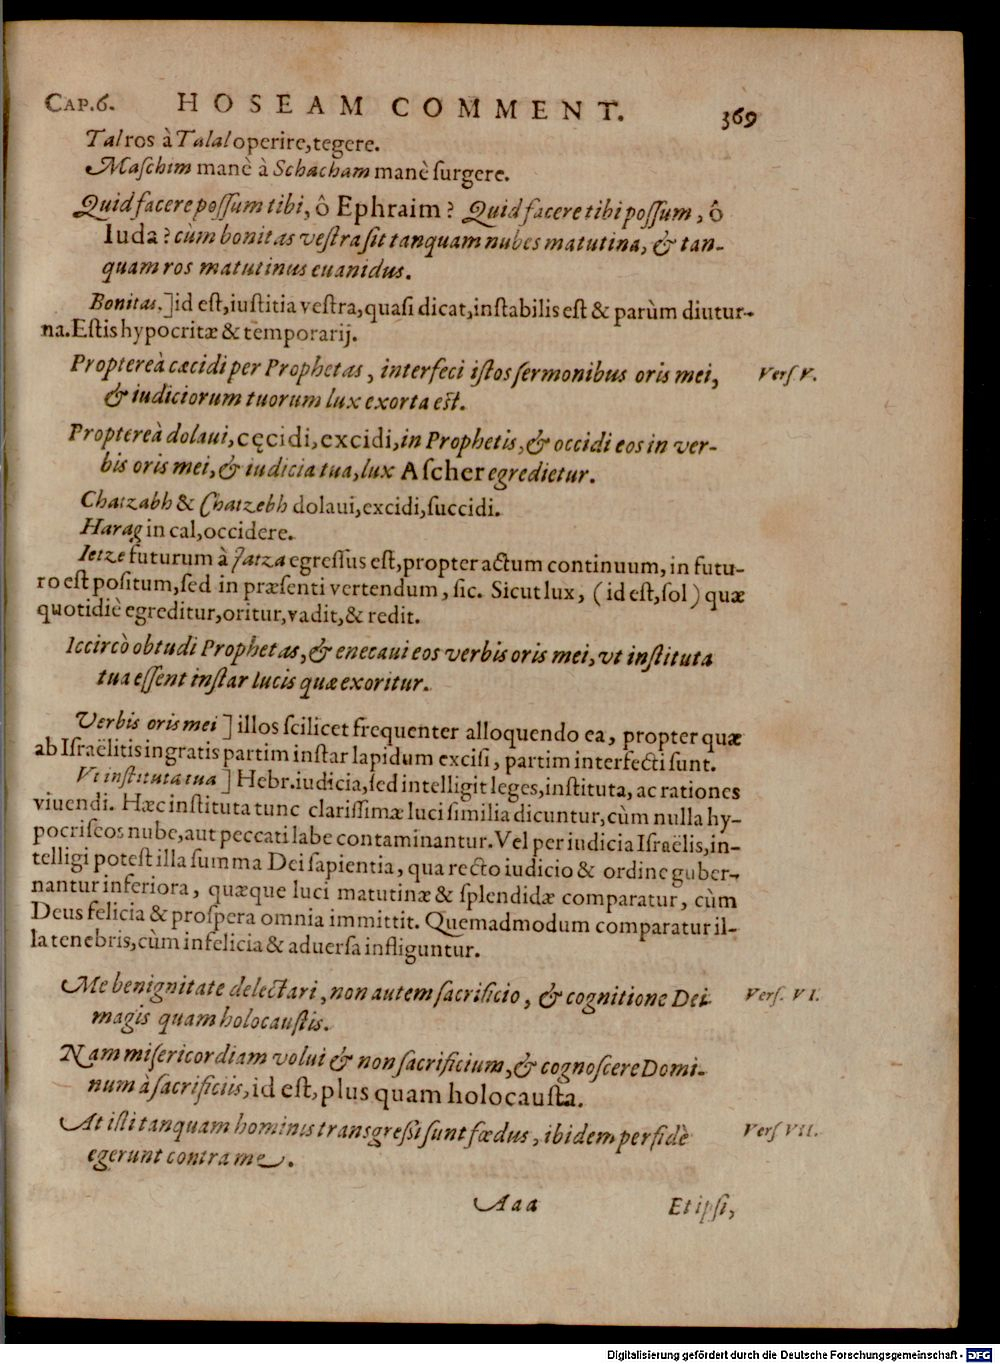 CAP.6. HOSEAM COMMENT. 369
Tal ros à Talal operire, tegere.
Maſchim manè à Schacham manè ſurgere.
Quid facere poſſum tibi, ô Ephraim? Quid facere tibi poſſum, ô
Iuda? cùm bonitas veſtra ſit tanquam nubes matutina, & tan-
quam ros matutinus euanidus.
Bonitas.] id eſt, iuſtitia veſtra, quaſi dicat, inſtabilis eſt & parùm diutur-
na. Eſtis hypocritæ & temporarij.
Proptereà cæcidi per Prophetas, interfeci iſtos ſermonibus oris mei, Verſ. V.
& iudiciorum tuorum lux exorta eſt.
Proptereà dolaui, cęcidi, excidi, in Prophetis, & occidi eos in ver-
bis oris mei, & iudicia tua, lux Aſcher egredietur.
Chatzabh & Chatzebh dolaui, excidi, ſuccidi.
Harag in cal, occidere.
Ietze futurum à Jatza egreſſus eſt, propter actum continuum, in futu-
ro eſt poſitum, ſed in præſenti vertendum, ſic. Sicut lux, (id eſt, ſol) quæ
quotidiè egreditur, oritur, vadit, & redit.
Iccircò obtudi Prophetas, & enecaui eos verbis oris mei, vt inſtituta
tua eſſent inſtar lucis quæ exoritur.
Verbis oris mei] illos ſcilicet frequenter alloquendo ea, propter quæ
ab Iſraëlitis ingratis partim inſtar lapidum exciſi, partim interfecti ſunt.
Vt inſtituta tua] Hebr. iudicia, ſed intelligit leges, inſtituta, ac rationes
viuendi. Hæc inſtituta tunc clariſſimæ luci ſimilia dicuntur, cùm nulla hy-
pocriſeos nube, aut peccati labe contaminantur. Vel per iudicia Iſraëlis, in-
telligi poteſt illa ſumma Dei ſapientia, qua recto iudicio & ordine guber-
nantur inferiora, quæque luci matutinæ & ſplendidæ comparatur, cùm
Deus felicia & proſpera omnia immittit. Quemadmodum comparatur il-
la tenebris, cùm infelicia & aduerſa infliguntur.
Me benignitate delectari, non autem ſacrificio, & cognitione Dei Verſ. VI.
magis quam holocauſtis.
Nam miſericordiam volui & non ſacrificium, & cognoſcere Domi-
num à ſacrificiis, id eſt, plus quam holocauſta.
At iſti tanquam hominis transgreßi ſunt fœdus, ibidem perfidè Verſ VII.
egerunt contra me.
Aaa Et ipſi,
Digitalisierung gefördert durch die Deutsche Forschungsgemeinschaft - DFG